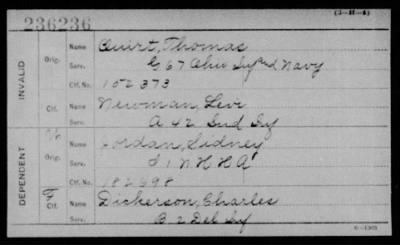 236236
(3-H-4)
INVALID
Orig.
Name Quirt, Thomas
Serv. G 67 Ohio Inf and Navy
Ctf. No. 152373
Ctf.
Name Newman, Levi
Serv. A 42 Ind Inf
DEPENDENT
Orig.
Name Jordan, Sidney
Serv. I 1 N H H A
Ctf. No. 182698
Ctf.
Name Dickerson, Charles
Serv. B 2 Del Inf
6-1305